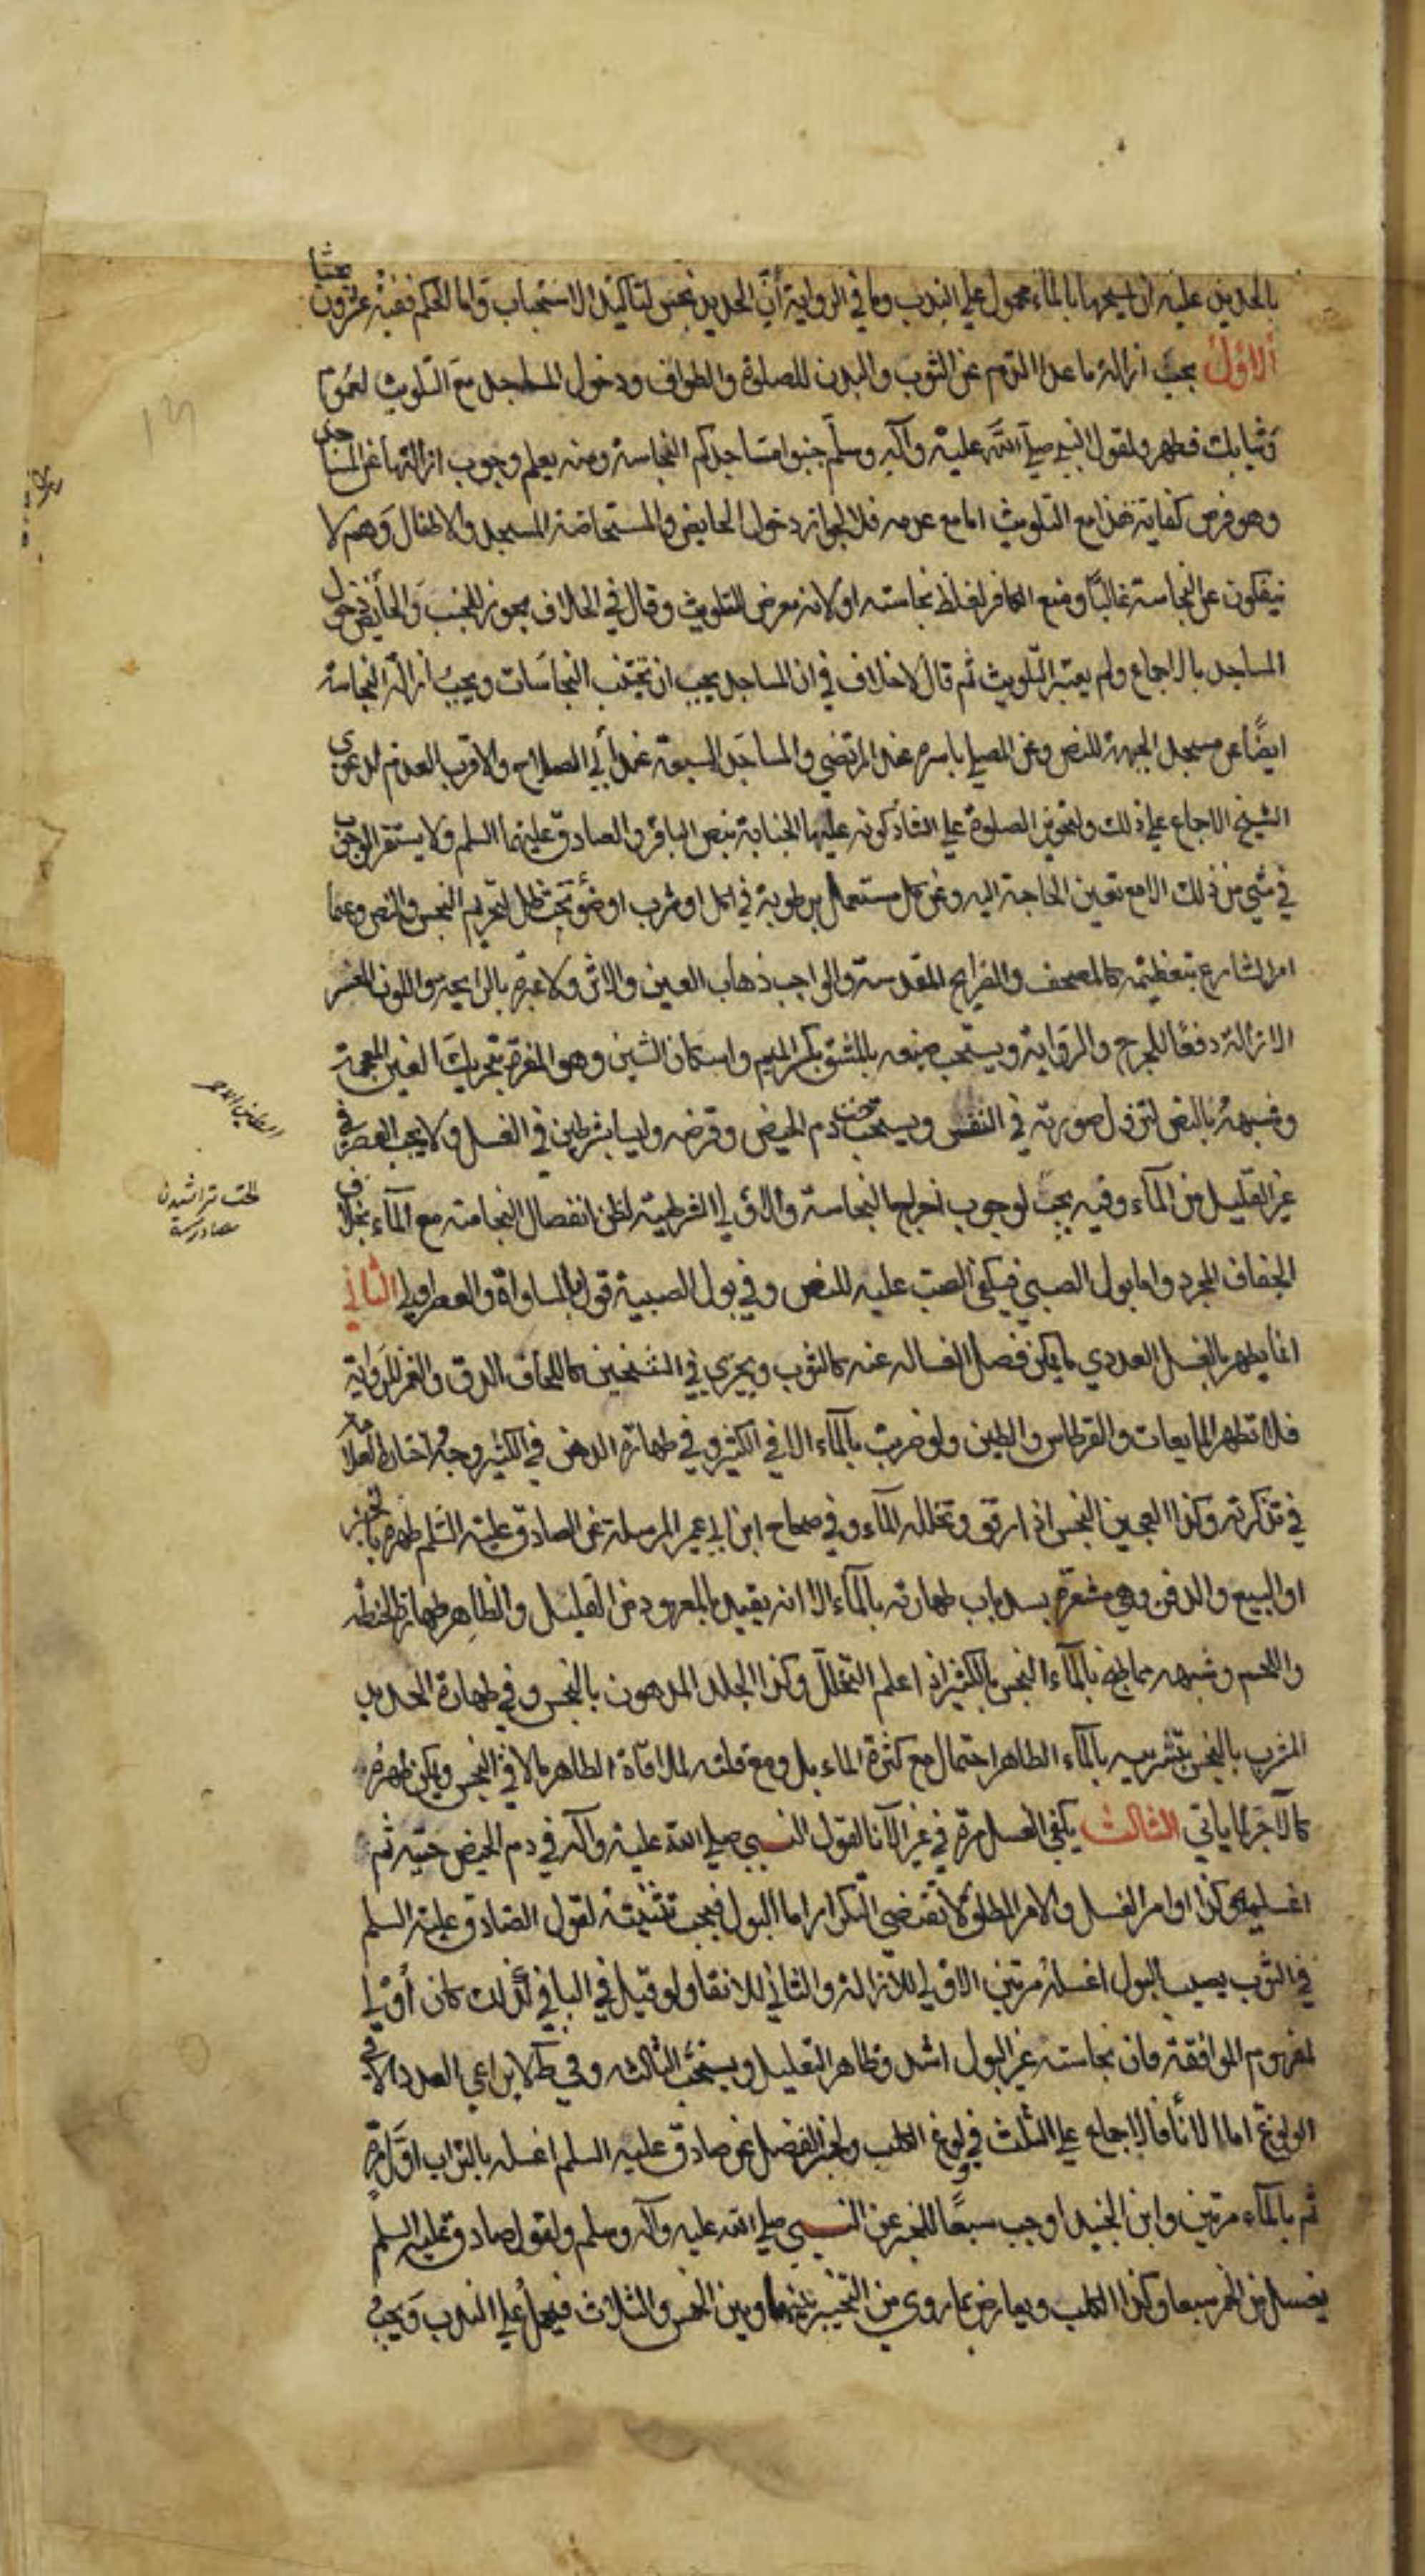 بالحديد عليه ان يمسحها بالماء محمول علي الندب وما في الرواية ان الحديد نجس لتاكيد الاستحباب واما الحكم ففيه عشرون بحثا
الاول يجب ازالة ما عدا الدم عن الثوب والبدن للصلوة والطواف ودخول المساجد مع التلويث لعموم
وثيابك فطهر ولقول النبي صلي الله عليه وآله وسلم جنبوا مساجدكم النجاسة ومنه يعلم وجوب ازالتها عن المساجد
وهو فرض كفاية هذا مع التلويث اما مع عدمه فلا لجواز دخول الحايض والمستحاضة المسجد والاطفال وهم لا
ينفكون عن النجاسة غالبا ومنع الكافر لغلظ نجاسته او لانه معرض للتلويث وقال في الخلاف يجوز للجنب والحايض دخول
المساجد بالاجماع ولم يعتبر التلويث ثم قال لا خلاف في ان المساجد يجب ان تجتنب النجاسات ويجب ازالة النجاسة
ايضا عن مسجد الجبهة للنص وعن المصلي باسره عند المرتضي والمساجد السبعة عند ابي الصلاح والاقرب العدم لدعوي
الشيخ الاجماع علي ذلك ولتجويز الصلوة علي الشاذكونه عليها الجنابة بنص الباقر والصادق عليهما السلم ولا يستقر الوجوب
في شي من ذلك الا مع تعين الحاجة اليه وعن كل مستعمل برطوبة في اكل او شرب او ضوء تحت ظل لتحريم النجس والنص وعما
امر الشارع بتعظيمه كالمصحف والضرايح المقدسة والواجب ذهاب العين والاثر ولا عبرة بالرايحة واللون العسر
الازالة دفعا للحرج والرواية ويستحب صبغه بالمشق بكسر الميم واسكان الشين وهو المغرة بتحريك الغين المعجمة
وشبهه بالنص لتزول صورته في النفس ويستحب حت دم الحيض وقرضه وليسا بشرطين في الغسل ولا يجب العصر في
غير القليل من المآء وفيه يجب لوجوب اخراج النجاسة والاولي الشرطية لظن انفصال النجاسة مع المآء بخلاف
الجفاف المجرد واما بول الصبي فيكفي الصب عليه للنص وفي بول الصبية قول بالمساواة والعصر اولي الثاني
انما يطهر بالغسل العددي ما يمكن فصل الغسالة عنه كالثوب ويجزي في الثخين كاللحاف الدق والغمز للرواية
فلا تطهر المايعات والقرطاس والطين ولو ضربت بالمآء الا في الكثير وفي طهارة الدهن في الكثير وجه اختاره العلامة
في تذكرته وكذا العجين النجس اذا رقق وتخلله المآء وفي صحاح ابن ابي عمير المرسلة عن الصادق عليه السلم طهره بالخبز
او البيع والدفن وهي مشعرة بسد باب طهارته بالمآء الا انه يقيد بالمعهود من القليل والظاهر طهارة الحنطة
واللحم وشبهه مما طبخ بالمآء النجس بالكثير اذا علم التخلل وكذا الجلد المدهون بالنجس وفي طهارة الحديد
المشرب بالنجس بتشريبه بالمآء الطاهر احتمال مع كثرة الماء بل ومع قلته لملاقاة الطاهر ما لاقي النجس ويمكن طهره
كالآجر لما ياتي الثالث يكفي الغسل مرة في غير الآنا لقول النبي صلي الله عليه وآله في دم الحيض حتيه ثم
اغسليه وكذا اوامر الغسل والامر المطلق لا تقتضي التكرار اما البول فيجب تثنيته لقول الصادق عليه السلم
في الثوب يصيب البول اغسله مرتين الاولي للازالة والثاني للانقا ولو قيل في الباقي كذلك كان اولي
لمفهوم الموافقة فان نجاسة غير البول اشد وظاهر التعليل ويستحب الثالثه وفي ط لا يراعي العدد الا في
الولوغ اما الانأ فالاجماع علي الثلث في ولوغ الكلب ولخبر الفضل عن صادق عليه السلم اغسله بالتراب اول مرة
ثم بالمآء مرتين وابن الجنيد اوجب سبعا للخبر عن النبي صلي الله عليه وآله وسلم ولقول صادق عليه السلم
يغسل من الخمر سبعا وكذا الكلب ويعارض بما روي من التخيير بينها وبين الخمس والثلاث فيحمل علي الندب ويجب
الطين الاحمر
الحت تراشيدن
مصادرسة